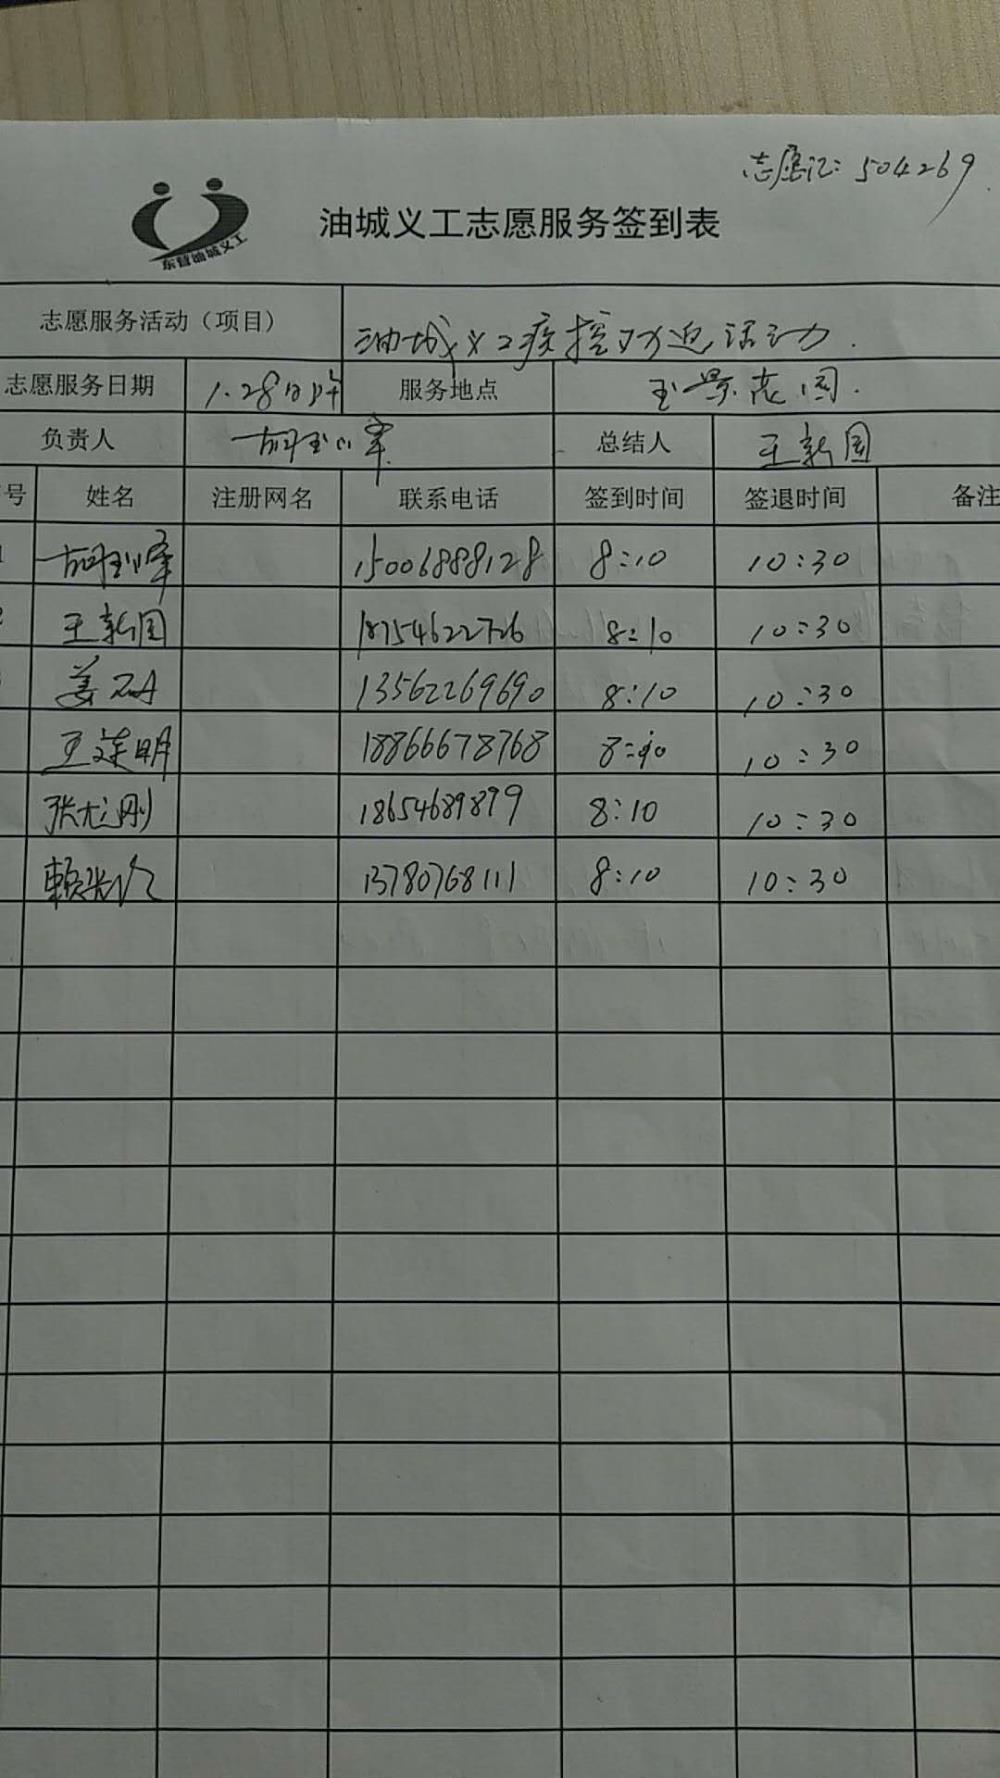 志愿汇: 504269
东营油城义工
油城义工志愿服务签到表
志愿服务活动（项目） 油城义工疫控防近活动.
志愿服务日期 1.28日 服务地点 玉景花园.
负责人 胡玉峰 总结人 王新国
号 姓名 注册网名 联系电话 签到时间 签退时间 备注
1 胡玉峰 15006888128 8:10 10:30
2 王新国 18754622726 8:10 10:30
姜 13562269690 8:10 10:30
王连明 18866678768 8:10 10:30
张龙刚 18654689899 8:10 10:30
赖 13780768111 8:10 10:30